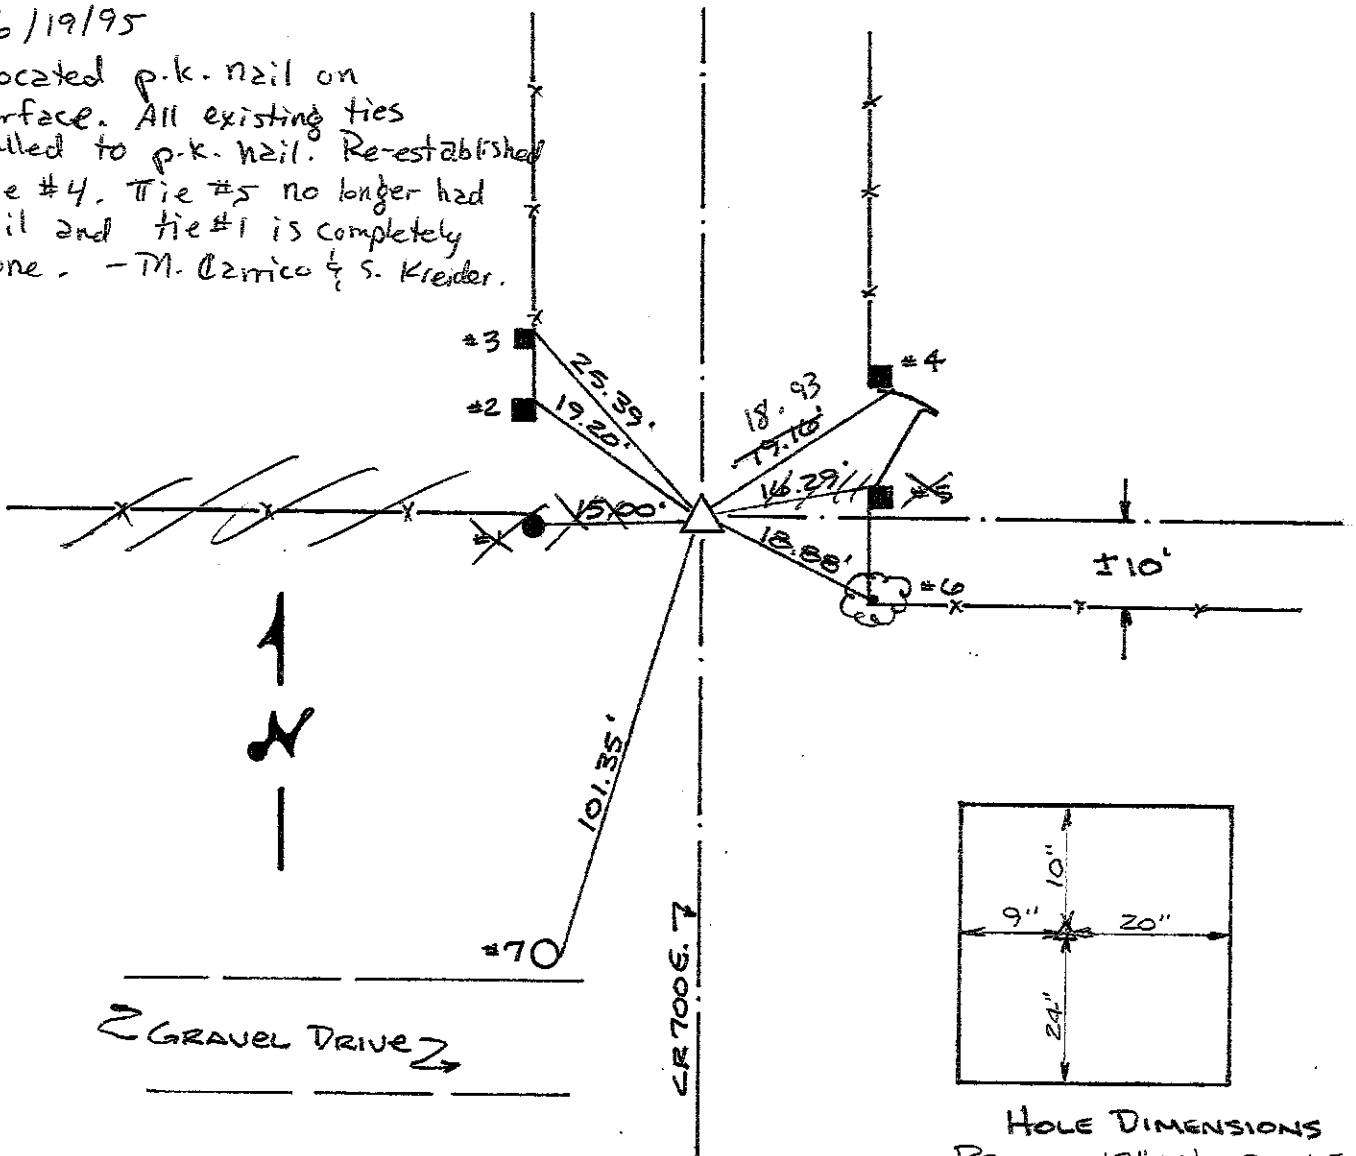 6/19/95
ocated p.k. nail on
rface. All existing ties
lled to p.k. nail. Re-established
e #4. Tie #5 no longer had
il and tie #1 is completely
one. - M. Carrico & S. Kreider.
#3
25.39'
#4
#2
19.20'
18.93
19.16'
16.29'
#5
#1
15.00'
18.88'
#6
±10'
N
101.35'
#7
CR 700 E.
GRAVEL DRIVE
10"
9"
20"
24"
HOLE DIMENSIONS